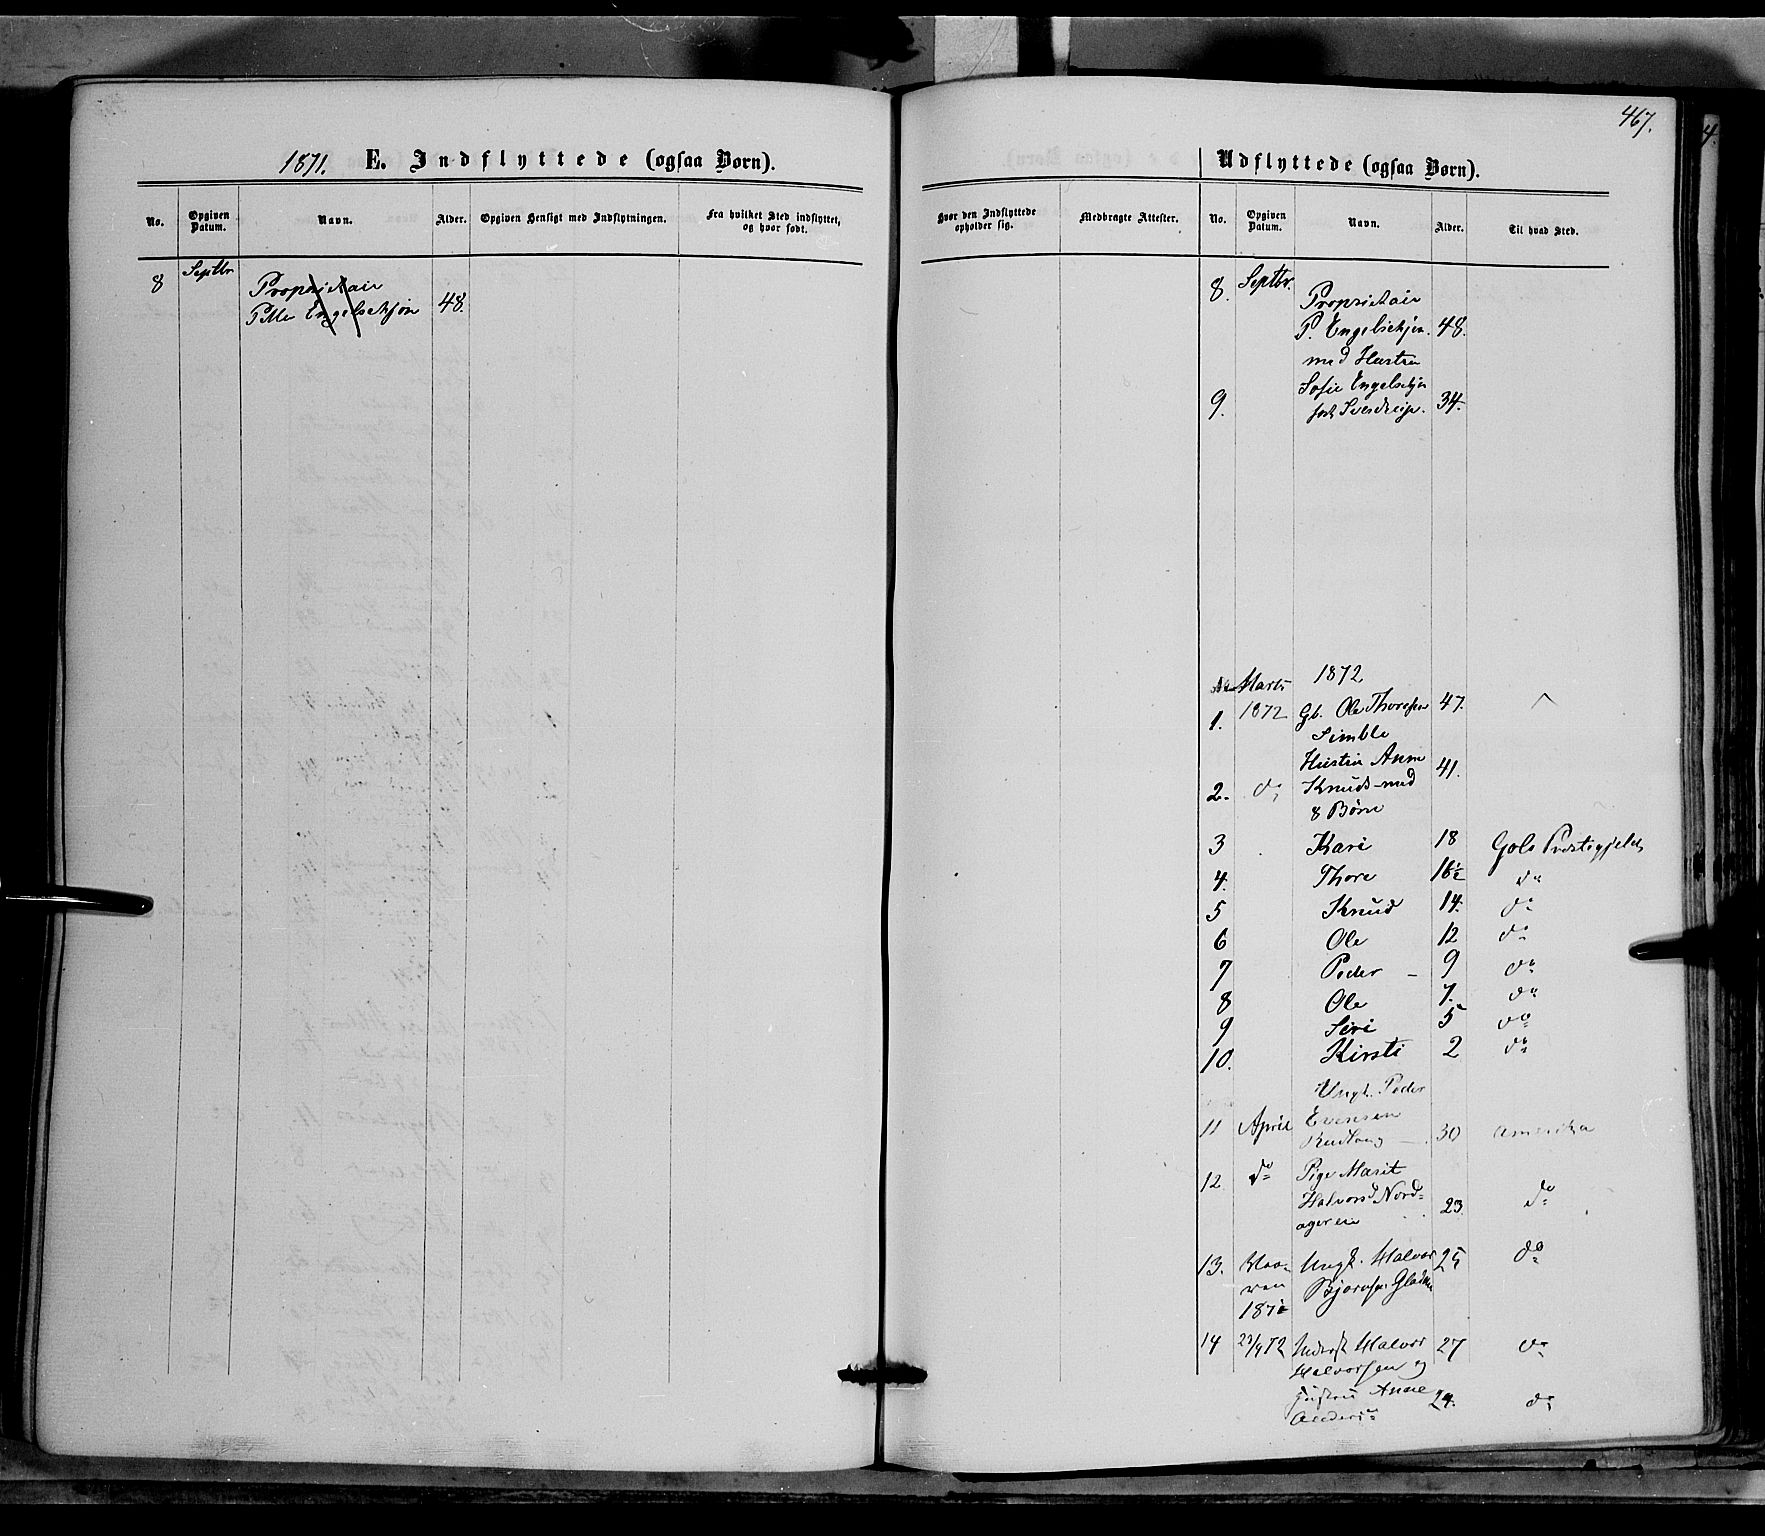 1871. E. Indflyttede (ogsaa Børn).
No. Opgiven Datum. Navn. Alder. Opgiven Hensigt med Indflytningen. Fra hvilket Sted indflyttet, og hvor født.
8 Septbr Proprietair
Petter Engelschjøn 48.
467.
Udflyttede (ogsaa Børn).
Hvor den Indflyttede opholder sig. Medbragte Attester. No. Opgiven Datum. Navn. Alder. Til hvad Sted.
8. Septbr. Proprietair
P. Engelschjøn. 48.
med Hustru
Sofie Engelschjøn
9. født Sverdrup. 34.
Marts 1872
1. 1872 Gb. Ole Thoresen 47.
Simble
Hustru Anne 41.
2. do Knuds- med
8 Børn
3 Kari 18 Gols Prestegjeld
4. Thore 16½ do
5 Knud 14. do
6 Ole 12 do
7 Peder - 9 do
8 Ole 7. do
9 Siri 5 do
10. Kirsti 2 do
Ungk. Peder
11 April Evensen
30 Amerika
12 do Pige Marit
Halvorsd Nord-
ageren 23. do
13. Ungk. Halvor 25 do
Bjørnsen
187
14 Halvor 27 do
Halvorsen og
Hustru Anne 24. do
Anders